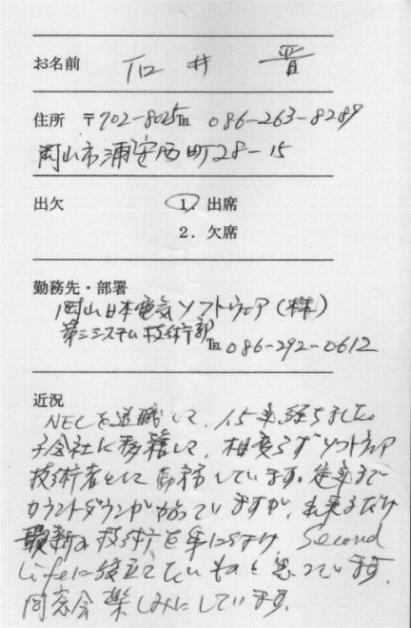 お名前 石井 晋
住所 〒702-8025 ℡ 086-263-8289
岡山市浦安西町28-15
出欠 1. 出席
2. 欠席
勤務先・部署
岡山日本電気ソフトウェア(株)
第三システム技術部 ℡ 086-292-0612
近況
NECを退職して、1.5年経ちました。
子会社に移籍して、相変らずソフトウェア
技術者として勤務しています。定年まで
カウントダウンがかかっていますが、出来るだけ
最新の技術を身につけ、Second
Lifeに役立てたいものと思っています。
同窓会楽しみにしています。